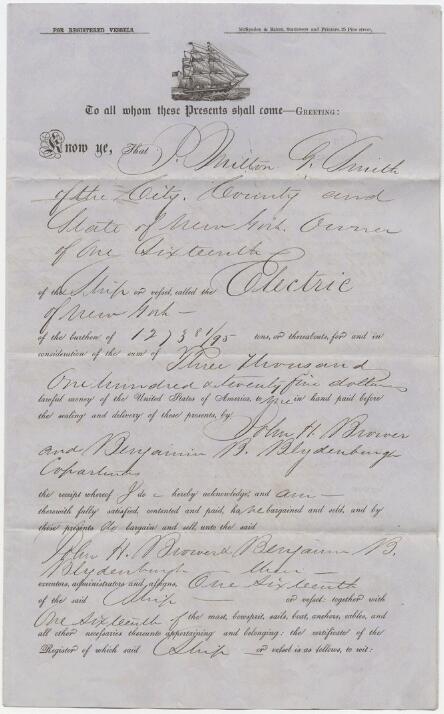 FOR REGISTERED VESSELS
McSpedon & Baker, Stationers and Printers, 25 Pine street,
To all whom these Presents shall come—GREETING:
Know ye, That I, Milton G. Smith
of the City, County and
State of New York. Owner
of One Sixteenth
of the Ship or vessel, called the Electric
of New York —
of the burthen of 1273 81/95 tons, or thereabouts, for and in
consideration of the sum of Three thousand
One hundred & twenty five dollars
lawful money of the United States of America, to me in hand paid before
the sealing and delivery of these presents, by
John H. Brower
and Benjamin B. Blydenburgh
Copartners
the receipt whereof I do — hereby acknowledge, and am —
therewith fully satisfied, contented and paid, have bargained and sold, and by
these presents do bargain and sell, unto the said
John H. Brower & Benjamin B.
Blydenburgh — their —
executors, administrators and assigns, One Sixteenth
of the said Ship — or vessel: together with
One Sixteenth of the mast, bowsprit, sails, boat, anchors, cables, and
all other necessaries thereunto appertaining and belonging: the certificate of the
Register of which said Ship — or vessel is as follows, to wit: